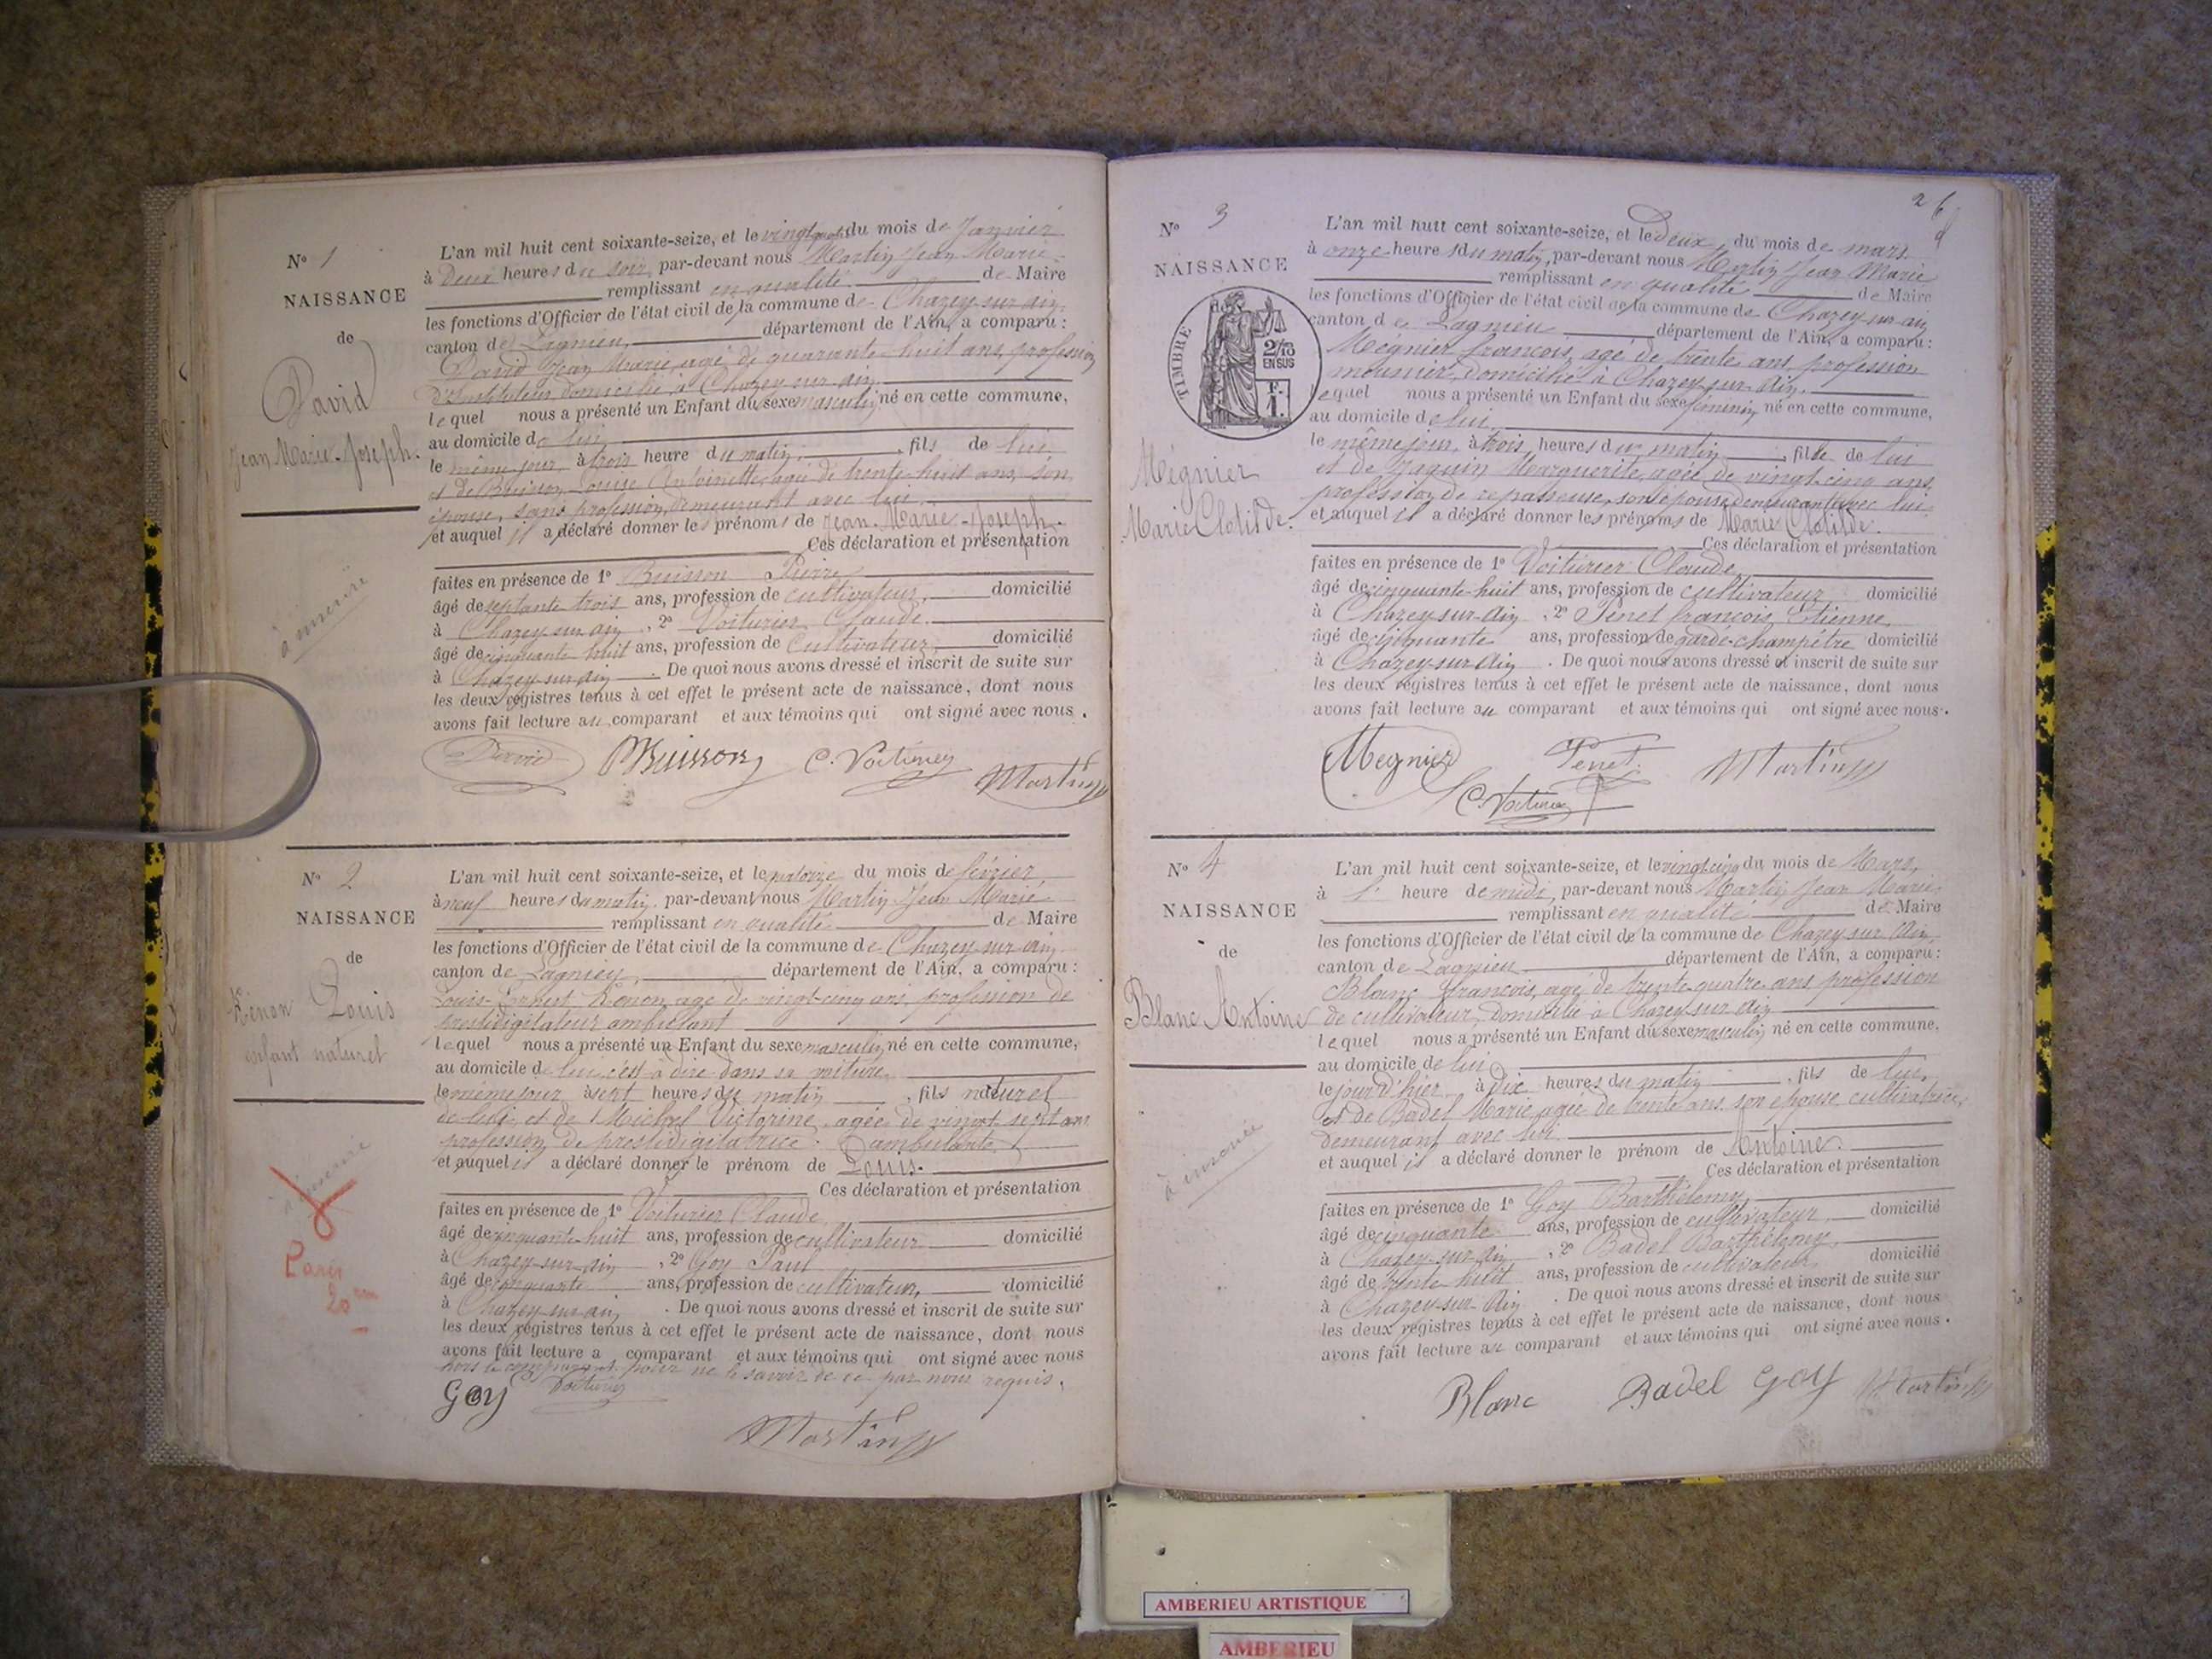 N° 1
NAISSANCE
de
David
Jean Marie-Joseph.
à inscrire
L'an mil huit cent soixante-seize, et le du mois de Janvier
à Deux heures du soir, par-devant nous Martin Jean Marie
remplissant en qualité de Maire
les fonctions d'Officier de l'état civil de la commune de Chazey-sur-ain,
canton de Lagnieu, département de l'Ain, a comparu :
David Jean Marie, agé de quarante-huit ans, profession
d'Instituteur, domicilié à Chazey-sur-ain
lequel nous a présenté un Enfant du sexe masculin, né en cette commune,
au domicile de lui
le même jour, à trois heure du matin, fils de lui,
et de Buisson Louise Antoinette, agée de trente-huit ans, son
épouse, sans profession, demeurant avec lui
et auquel il a déclaré donner les prénoms de Jean-Marie-Joseph.
Ces déclaration et présentation
faites en présence de 1° Buisson Pierre
âgé de septante trois ans, profession de cultivateur, domicilié
à Chazey-sur-ain, 2° Voiturier Claude.
âgé de cinquante huit ans, profession de Cultivateur, domicilié
à Chazey-sur-ain. De quoi nous avons dressé et inscrit de suite sur
les deux registres tenus à cet effet le présent acte de naissance, dont nous
avons fait lecture au comparant et aux témoins qui ont signé avec nous.
David Buisson C. Voiturier Martin
N° 2
NAISSANCE
de
Kénon Louis
enfant naturel
à inscrire
Paris
20
L'an mil huit cent soixante-seize, et le quatorze du mois de février,
à neuf heures du matin, par-devant nous Martin Jean Marie
remplissant en qualité de Maire
les fonctions d'Officier de l'état civil de la commune de Chazey-sur-ain
canton de Lagnieu, département de l'Ain, a comparu :
Louis-Ernest Kénon, agé de vingt-cinq ans, profession de
prestidigitateur ambulant
lequel nous a présenté un Enfant du sexe masculin, né en cette commune,
au domicile de lui, c'est à dire dans sa voiture
le même jour à sept heures du matin, fils naturel
de lui et de Michel Victorine, agée de vingt sept ans
profession de prestidigitatrice ambulante
et auquel il a déclaré donner le prénom de Louis.
Ces déclaration et présentation
faites en présence de 1° Voiturier Claude
âgé de cinquante-huit ans, profession de cultivateur domicilié
à Chazey-sur-ain, 2° Goy Paul
âgé de cinquante ans, profession de cultivateur, domicilié
à Chazey-sur-ain. De quoi nous avons dressé et inscrit de suite sur
les deux registres tenus à cet effet le présent acte de naissance, dont nous
avons fait lecture a comparant et aux témoins qui ont signé avec nous
hors le comparant pour ne le savoir de ce par nous requis.
Goy Voiturier
Martin
26
N° 3
NAISSANCE
TIMBRE
2/10
EN SUS
F.
1.
Mégnier
Marie Clotilde.
L'an mil huit cent soixante-seize, et le Deux du mois de mars
à onze heures du matin, par-devant nous Martin Jean Marie
remplissant en qualité de Maire
les fonctions d'Officier de l'état civil de la commune de Chazey-sur-ain
canton de Lagnieu département de l'Ain, a comparu :
Mégnier françois, agé de trente ans, profession
meunier, domicilié à Chazey-sur-Ain,
lequel nous a présenté un Enfant du sexe féminin, né en cette commune,
au domicile de lui
le même jour, à trois heures du matin, fille de lui
et de Marguerite, agée de vingt-cinq ans,
profession de repasseuse, son épouse, demeurant avec lui
et auquel il a déclaré donner les prénoms de Marie Clotilde.
Ces déclaration et présentation
faites en présence de 1° Voiturier Claude
âgé de cinquante-huit ans, profession de cultivateur domicilié
à Chazey-sur-Ain, 2° Penet françois Etienne,
âgé de cinquante ans, profession de garde-champêtre domicilié
à Chazey-sur-Ain. De quoi nous avons dressé et inscrit de suite sur
les deux registres tenus à cet effet le présent acte de naissance, dont nous
avons fait lecture au comparant et aux témoins qui ont signé avec nous.
Megnier Penet Martin
C. Voiturier
N° 4
NAISSANCE
de
Blanc Antoine
à inscrire
L'an mil huit cent soixante-seize, et le vingt-cinq du mois de Mars,
à 1 heure de midi, par-devant nous Martin Jean Marie
remplissant en qualité de Maire
les fonctions d'Officier de l'état civil de la commune de Chazey-sur-Ain,
canton de Lagnieu département de l'Ain, a comparu :
Blanc françois, agé de trente-quatre ans, profession
de cultivateur, domicilié à Chazey-sur-ain
lequel nous a présenté un Enfant du sexe masculin, né en cette commune,
au domicile de lui
le jour d'hier à dix heures du matin, fils de lui,
et de Badel Marie, agée de trente ans, son épouse, cultivatrice,
demeurant avec lui
et auquel il a déclaré donner le prénom de Antoine.
Ces déclaration et présentation
faites en présence de 1° Goy Barthélemy,
âgé de cinquante ans, profession de cultivateur, domicilié
à Chazey-sur-Ain, 2° Badel Barthélemy,
âgé de trente huit ans, profession de cultivateur domicilié
à Chazey-sur-Ain. De quoi nous avons dressé et inscrit de suite sur
les deux registres tenus à cet effet le présent acte de naissance, dont nous
avons fait lecture au comparant et aux témoins qui ont signé avec nous.
Blanc Badel Goy Martin
AMBERIEU ARTISTIQUE
AMBERIEU